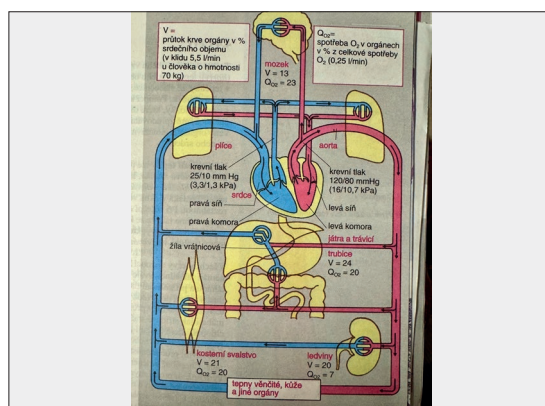 V =
průtok krve orgány v %
srdečního objemu
(v klidu 5,5 l/min
u člověka o hmotnosti
70 kg)
Q̇O2=
spotřeba O2 v orgánech
v % z celkové spotřeby
O2 (0,25 l/min)
mozek
V = 13
Q̇O2 = 23
plíce
aorta
krevní tlak
25/10 mm Hg
(3,3/1,3 kPa)
krevní tlak
120/80 mmHg
(16/10,7 kPa)
srdce
pravá síň
levá síň
pravá komora
levá komora
žíla vrátnicová
játra a trávicí
trubice
V = 24
Q̇O2 = 20
kosterní svalstvo
V = 21
Q̇O2 = 20
ledviny
V = 20
Q̇O2 = 7
tepny věnčité, kůže
a jiné orgány